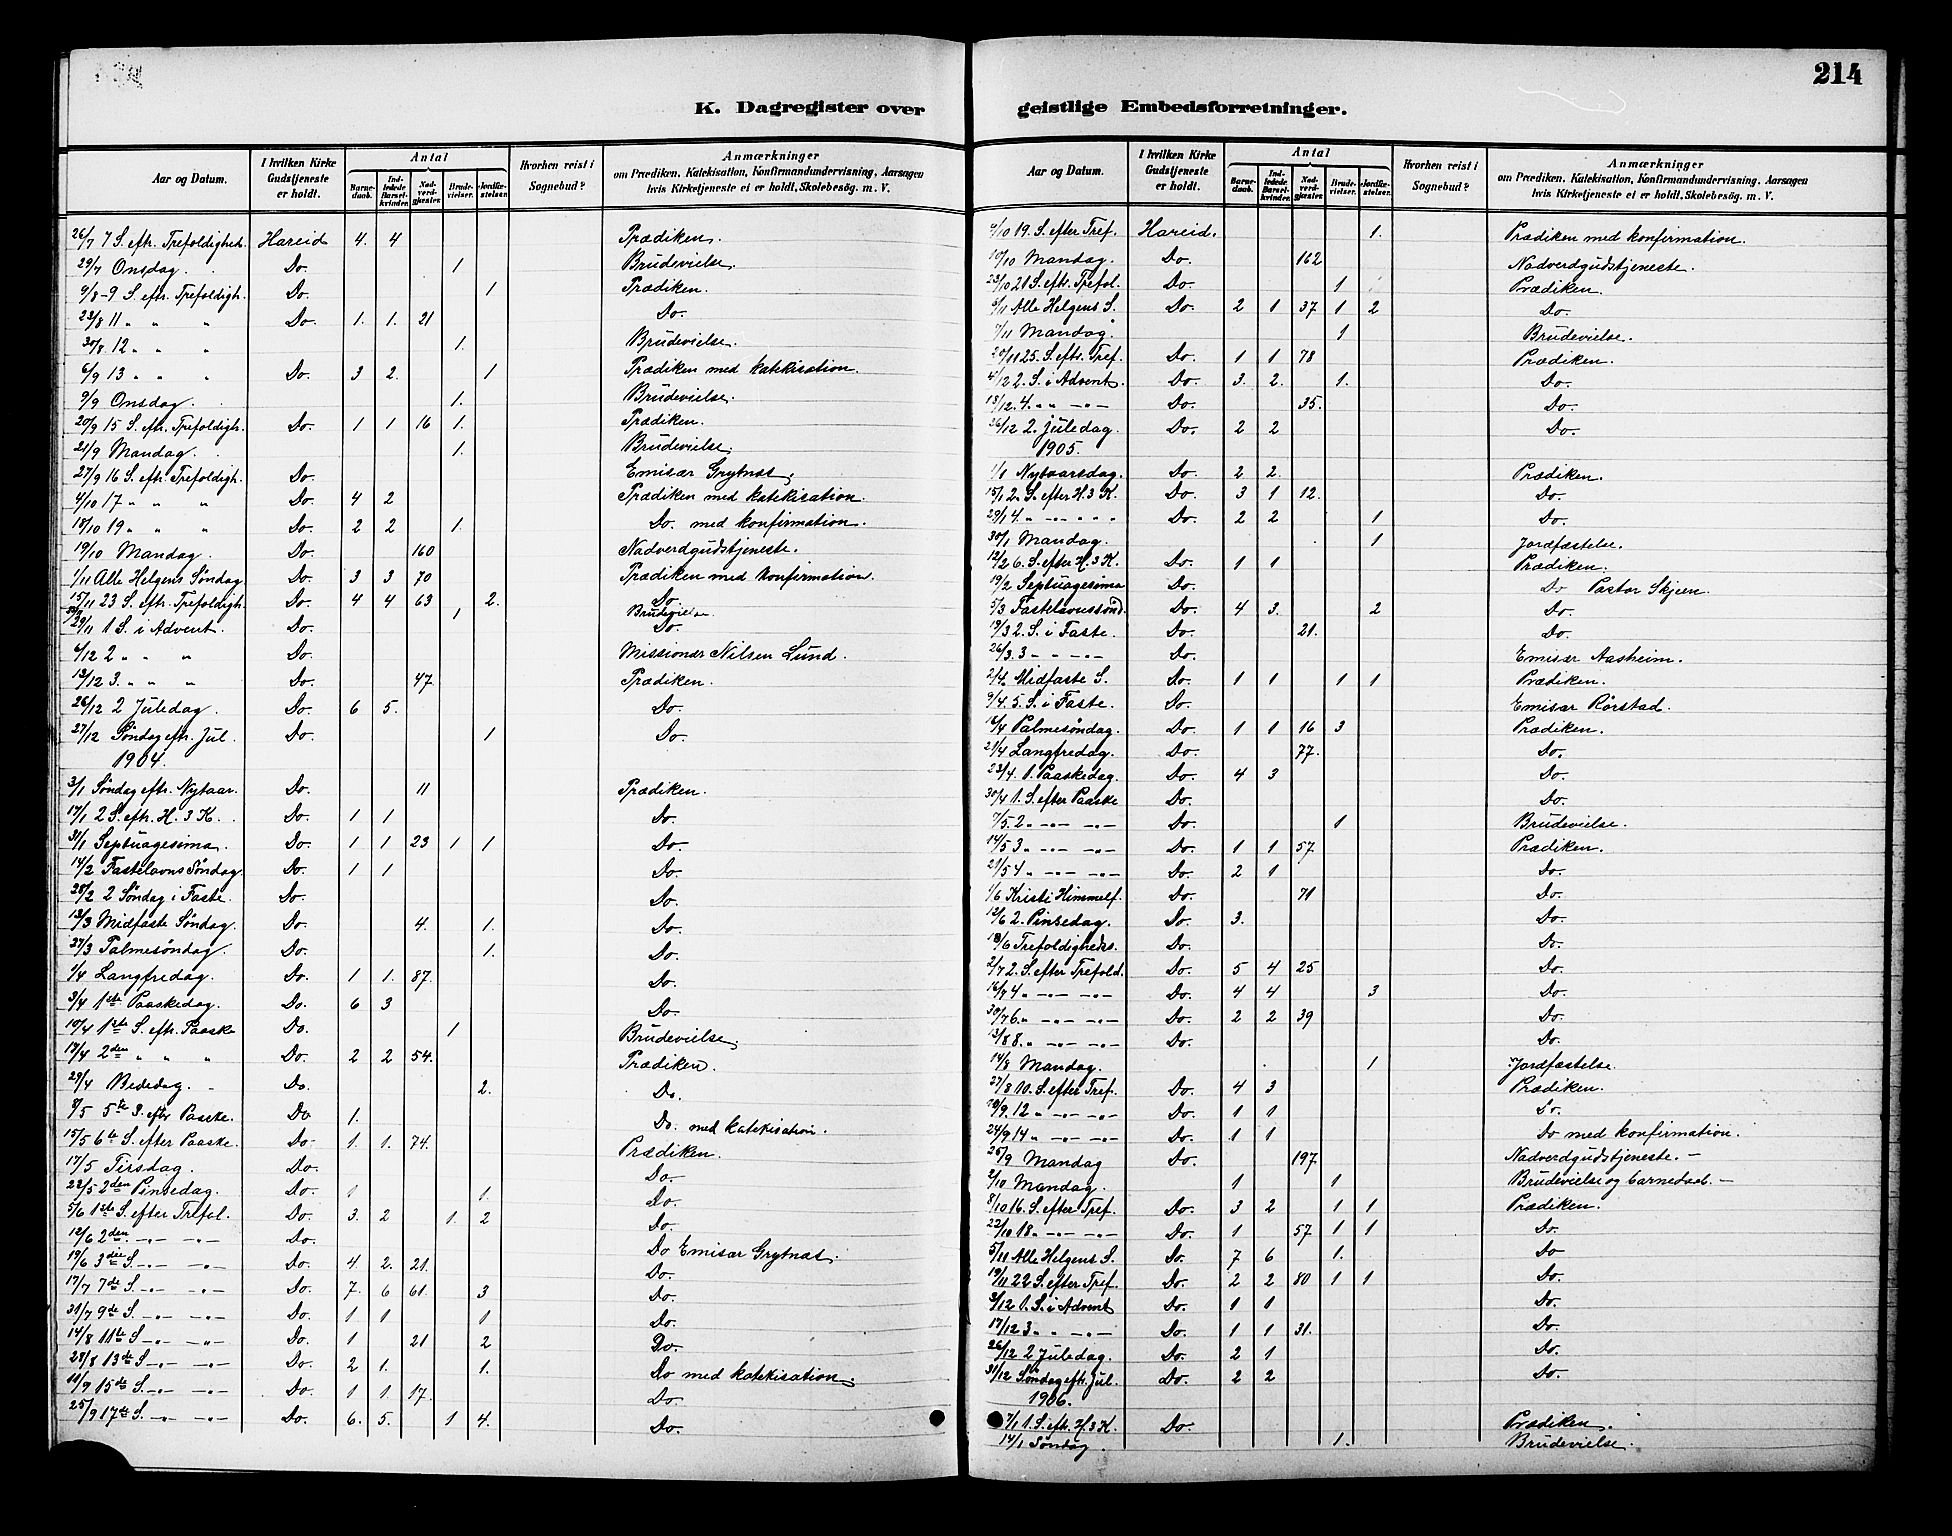 214
K. Dagregister over geistlige Embedsforretninger.
Aar og Datum. | I hvilken Kirke Gudstjeneste er holdt. | Antal | Barnedaab. | Indledede Barselkvinder. | Nadverdgjester. | Brudevielser. | Jordfæstelser. | Hvorhen reist i Sognebud? | Anmærkninger om Prædiken, Katekisation, Konfirmandundervisning, Aarsagen hvis Kirketjeneste ei er holdt, Skolebesög m. V.
26/7 7 S. eftr. Trefoldighed. Hareid 4. 4 Prædiken.
29/7 Onsdag. Do. 1 Brudevielse.
9/8 9 S. eftr. Trefoldigh. Do. 1 Prædiken.
23/8 11 " " " Do. 1. 1. 21 Do.
30/8 12 " " " 1. Brudevielse.
6/9 13 " " " Do. 3 2. 1 Prædiken med katekisation.
9/9 Onsdag. 1. Brudevielse.
20/9 15 S. eftr. Trefoldigh. Do. 1 1 16 1. Prædiken.
21/9 Mandag. 1. Brudevielse.
27/9 16 S. eftr. Trefoldigh. Do. Emisær Grytnæs.
4/10 17 " " " Do. 4 2 Prædiken med katekisation.
18/10 19 " " " Do. 2 2 1. Do. med konfirmation.
19/10 Mandag. Do. 160 Nadverdgudstjeneste.
1/11 Alle Helgens Söndag Do. 3 3 70 Prædiken med konfirmation.
15/11 23 S. eftr. Trefoldigh. Do. 4 4 63 2. Do.
1 Brudevielse
29/11 1 S. i Advent. Do. Do.
6/12 2 " " " Do. Missionær Nilsen Lund.
13/12 3. " " " Do. 47. Prædiken.
26/12 2 Juledag. Do. 6 5. Do.
27/12 Söndag eftr. Jul. Do. 1 Do.
1904.
3/1 Söndag eftr. Nytaar. Do. 11 Prædiken.
17/1 2 S. eftr. H. 3 K. Do. 1 1 Do.
31/1 Septuagesima. Do. 1 1 23 1 1 Do.
14/2 Fastelavns Söndag. Do. 1 1 Do.
28/2 2 Söndag i Faste. Do. Do.
13/3 Midfaste Söndag. Do. 4. 1. Do.
27/3 Palmesöndag. Do. 1. Do.
1/4 Langfredag. Do. 1 1. 87. Do.
3/4 1ste Paaskedag. Do. 6 3 Do.
10/4 1ste S. eftr. Paaske Do. 1 Brudevielse.
17/4 2den " " " Do. 2 2 54. Prædiken.
29/4 Bededag. Do. 2. Do.
8/5 5te S. eftr Paaske. Do 1. Do. med katekisation.
15/5 6te S. efter Paaske. Do. 1. 1. 74. Prædiken.
17/5 Tirsdag. Do. Do.
22/5 2den Pinsedag. Do. 1 1. Do.
5/6 1ste S. efter Trefol. Do. 3. 2 1. 2 Do.
12/6 2den. —"— —"— Do. Do Emisær Grytnæs.
19/6 3die S. —"— —"— Do. 4. 2. 21. Do.
17/7 7de S. —"— —"— Do. 7. 6 61. 3 Do.
31/7 9de S. —"— —"— Do. 1 1 1 Do.
14/8 11te S. —"— —"— Do. 1 21 2 Do.
28/8 13de S. —"— —"— Do. 2 1. 1. Do med katekisation.
11/9 15de S. —"— —"— Do. 1 1. 17. Do.
25/9 17de S. —"— —"— Do. 6. 5. 1 4. Do.
Aar og Datum. | I hvilken Kirke Gudstjeneste er holdt. | Antal | Barnedaab. | Indledede Barselkvinder. | Nadverdgjester. | Brudevielser. | Jordfæstelser. | Hvorhen reist i Sognebud? | Anmærkninger om Prædiken, Katekisation, Konfirmandundervisning, Aarsagen hvis Kirketjeneste ei er holdt, Skolebesög m. V.
9/10 19. S. efter Tref. Hareid. 1. Prædiken med konfirmation.
10/10 Mandag. Do. 162 Nadverdgudstjeneste.
23/10 21 S. eftr. Trefol. Do. 1 Prædiken.
6/11 Alle Helgens S. Do. 2 1 37 1 2 Do.
7/11 Mandag. 1 Brudevielse.
20/11 25. S. eftr. Tref. Do. 1 1 78 Prædiken.
4/12 2. S. i Advent. Do. 3. 2. 1. Do.
18/12. 4. " " —"— Do. 35. Do.
26/12 2. Juledag. Do. 2 2 Do.
1905.
1/1 Nytaarsdag. Do. 2 2. Prædiken.
15/1 2. S. efter H. 3 K. Do. 3 1 12. Do.
29/1 4. " —"— " " " Do. 2 2 1 Do.
30/1 Mandag. 1 Jordfæstelse.
12/2 6. S. efter H. 3 K. Do. 1 1 Prædiken.
19/2 Septuagesima Do. Do Pastor Skjeen.
5/3 Fastelavnssönd. Do. 4 3. 2 Do.
19/3 2. S. i Faste. Do. 21. Do.
26/3. 3 —"— —"— Do. Emisær Aasheim.
2/4. Midfaste S. Do. 1 1 1 1 Prædiken.
9/4. 5. S. i Faste. Do. Emisær Rörstad.
16/4 Palmesöndag. Do. 1 1 16 3 Prædiken.
21/4 Langfredag. Do. 77. Do.
23/4. 1. Paaskedag. Do. 4 3 Do.
30/4 1. S. efter Paaske Do. Do.
7/5. 2 " —"— —"— Do. 1 Brudevielse.
14/5 3 " —"— —"— Do. 1 1 57 Prædiken.
21/5 4 " —"— —"— Do. 2 1 Do.
1/6 Kristi Himmelf. Do. 71 Do.
12/6 2. Pinsedag. Do. 3. Do.
18/6 Trefoldigheds. Do. Do.
2/7 2. S. efter Trefold. Do. 5 4 25 Do.
16/7 4 " —"— —"— Do. 4 4 3 Do.
30/7 6. " —"— —"— Do. 2 2 39 Do.
13/8 8. " —"— —"— Do. Do.
14/8 Mandag. 1 Jordfæstelse.
27/8 10. S. efter Tref. Do. 4 3 Prædiken.
10/9. 12 " —"— —"— Do. 1 1 Do.
24/9 14 " —"— —"— Do. 1 1 Do med konfirmation.
25/9 Mandag Do. 197. Nadverdgudstjeneste. —
2/10 Mandag. 1 1 Brudevielse og barnedaab. —
8/10 16. S. efter Tref. Do. 3 2 1 1 Prædiken.
22/10 18 —"— —"— Do. 1 57 1 1 Do.
5/11 Alle Helgens S. Do. 7 6 1. Do
19/11 22 S. efter Tref. Do. 2 2 80 1 1 Do.
3/12 1. S. i Advent Do. 1 1 Do.
17/12 3 " —"— —"— Do. 1 1 31. Do.
26/12 2 Juledag. Do. 2 1 Do.
31/12 Söndag eftr. Jul. Do. 2 2 Do.
1906.
7/1 1. S. eftr. H. 3 K. Do. Prædiken.
14/1 Söndag. 1. Brudevielse.